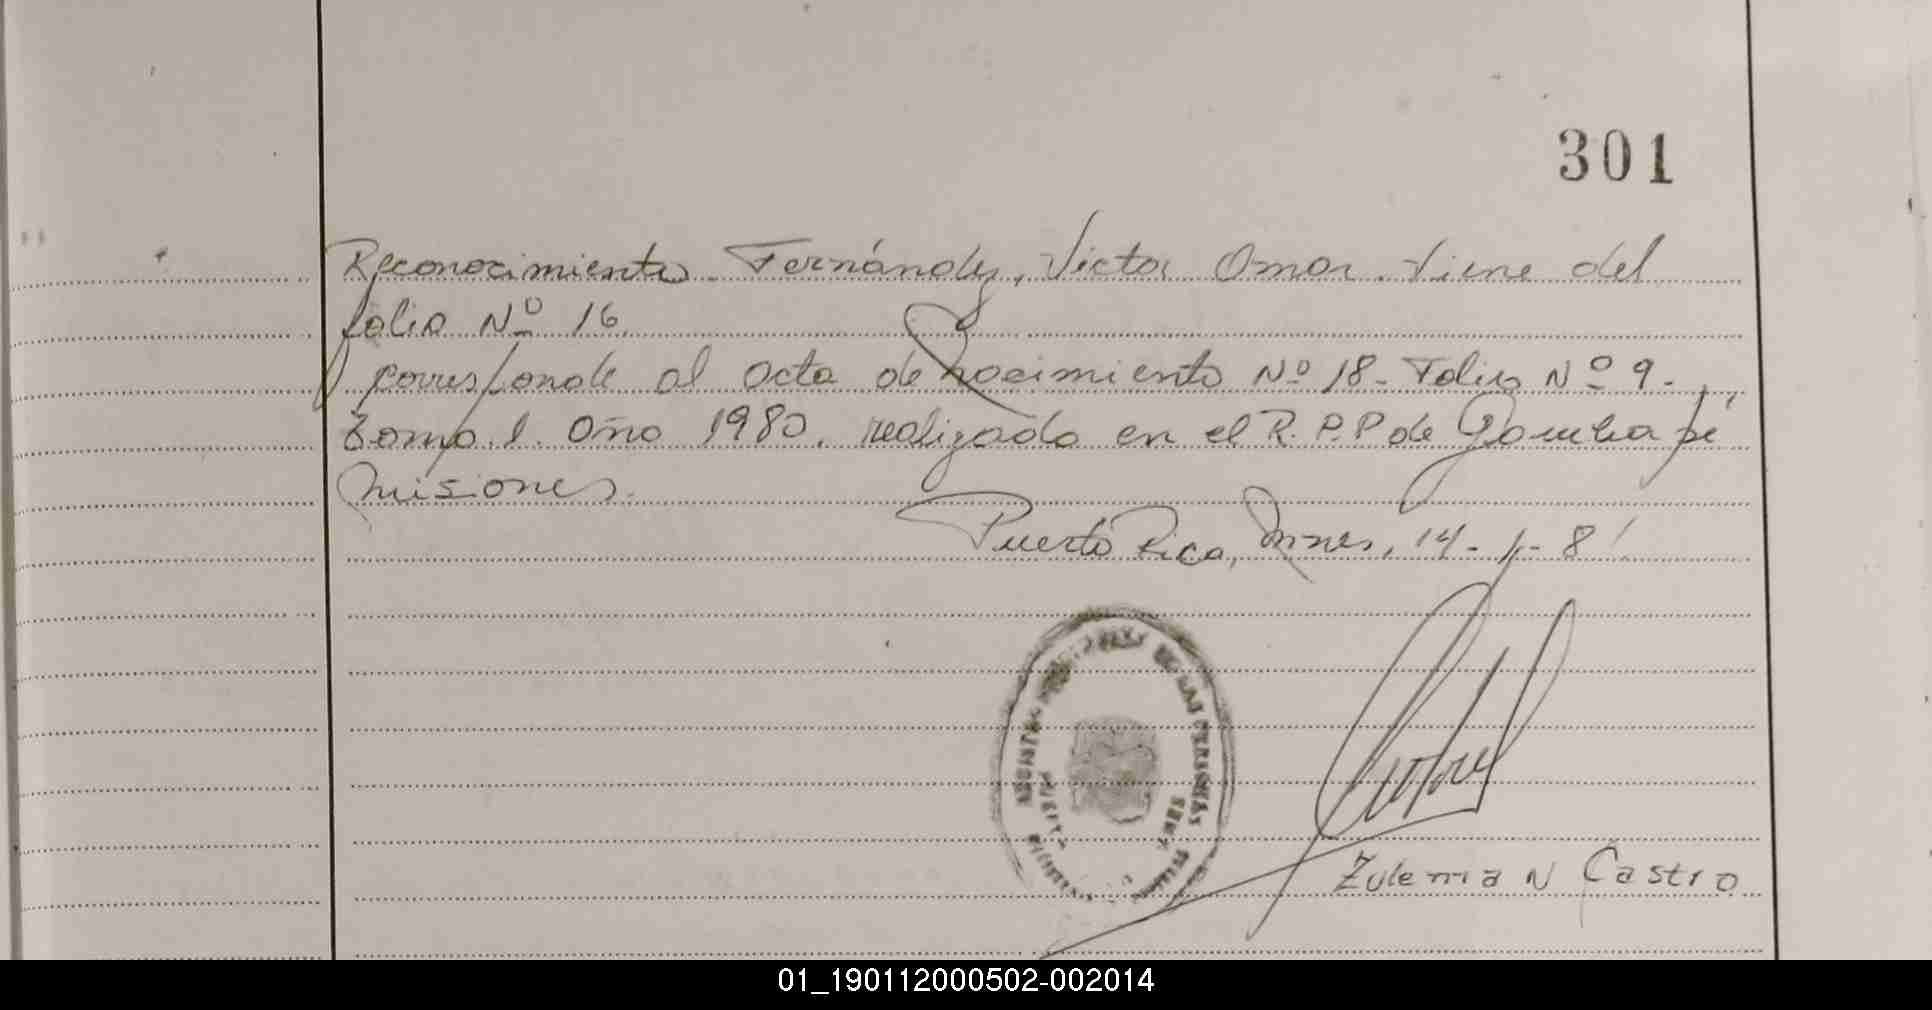 301
Reconocimiento. Fernández, Victor Omar. Viene del
folio Nº 16.
corresponde al acta de nacimiento Nº 18. Folio Nº 9.
Tomo. 1. Año 1980. realizado en el R.P.P de Garuhapé
Misiones.
Puerto Rico, Mnes, 14-1-81
REGISTRO DE LAS PERSONAS
Zulema N Castro
01_190112000502-002014